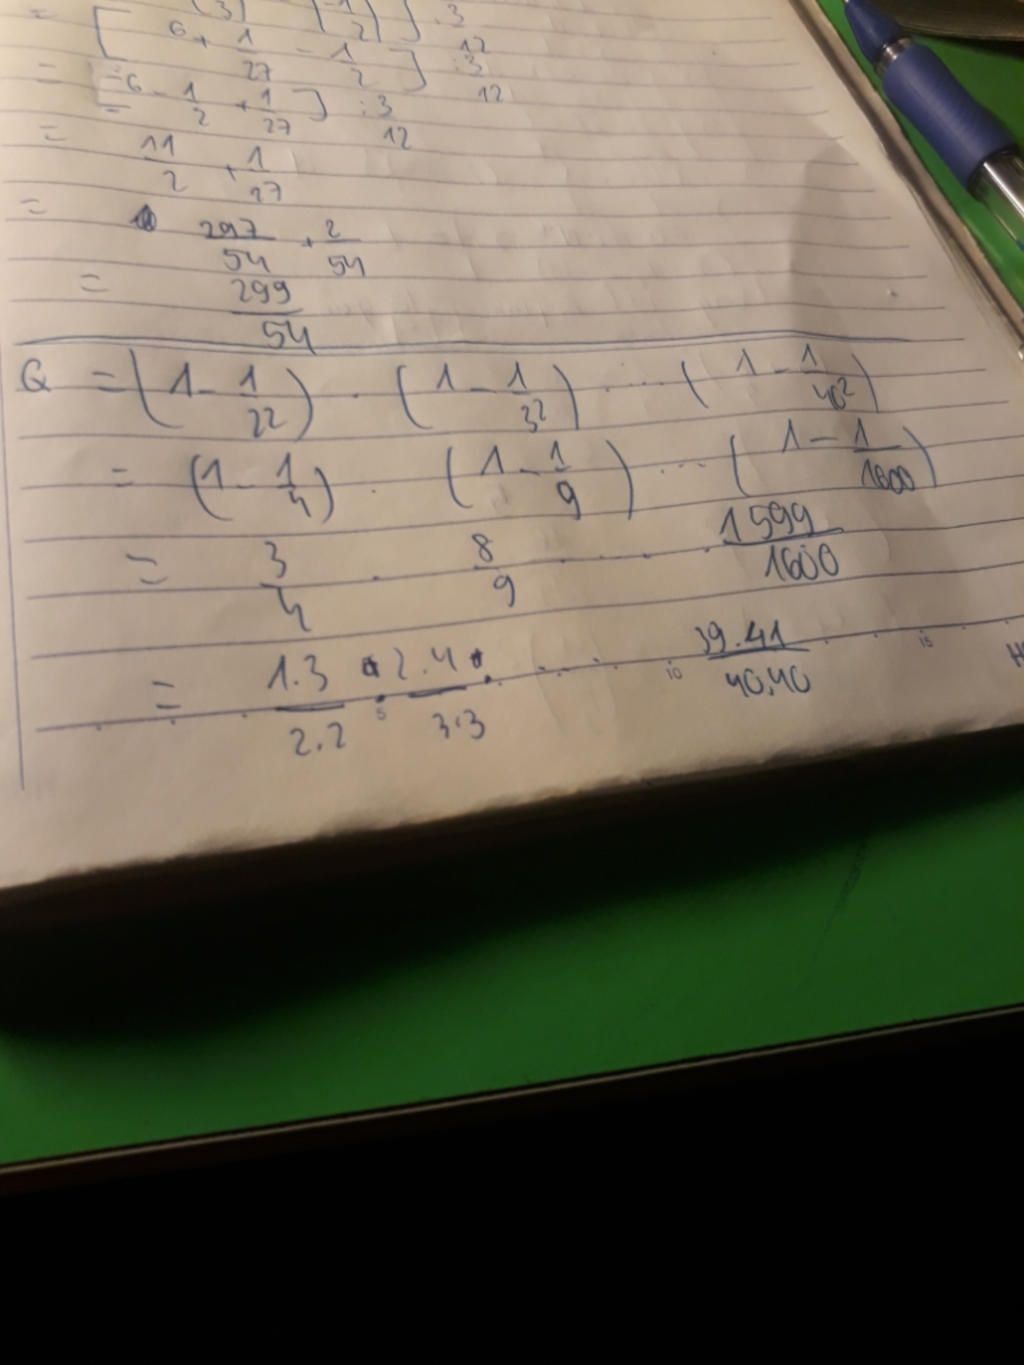 = [ 6 + 1/27 - 1/2 ] : 3/12
= [ -6 - 1/2 + 1/27 ] : 3/12
= 11/2 + 1/27
= 297/54 + 2/54
= 299/54
Q = (1 - 1/2²) . (1 - 1/3²) ..... (1 - 1/40²)
= (1 - 1/4) . (1 - 1/9) .... (1 - 1/1600)
= 3/4 . 8/9 . . . . 1599/1600
= 1.3/2.2 . 2.4/3.3 . .... 39.41/40.40
5 10 15